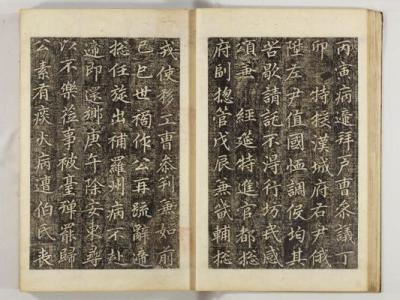 丙寅病遞拜戶曹參議丁
卯特授漢城府右尹俄
陞左尹值國恤調役均其
苦歇請託不得行坊民感
頌兼經筵特進官都摠
府副摠管戊辰兼輔摠
戎使移工曹參判兼如前
己巳世禍作公再疏辭遞
摠任旋出補羅州病不赴
遞即還鄉庚午除安東尊
以不樂莅事被臺彈罷歸
公素有痰火病遭伯氏喪